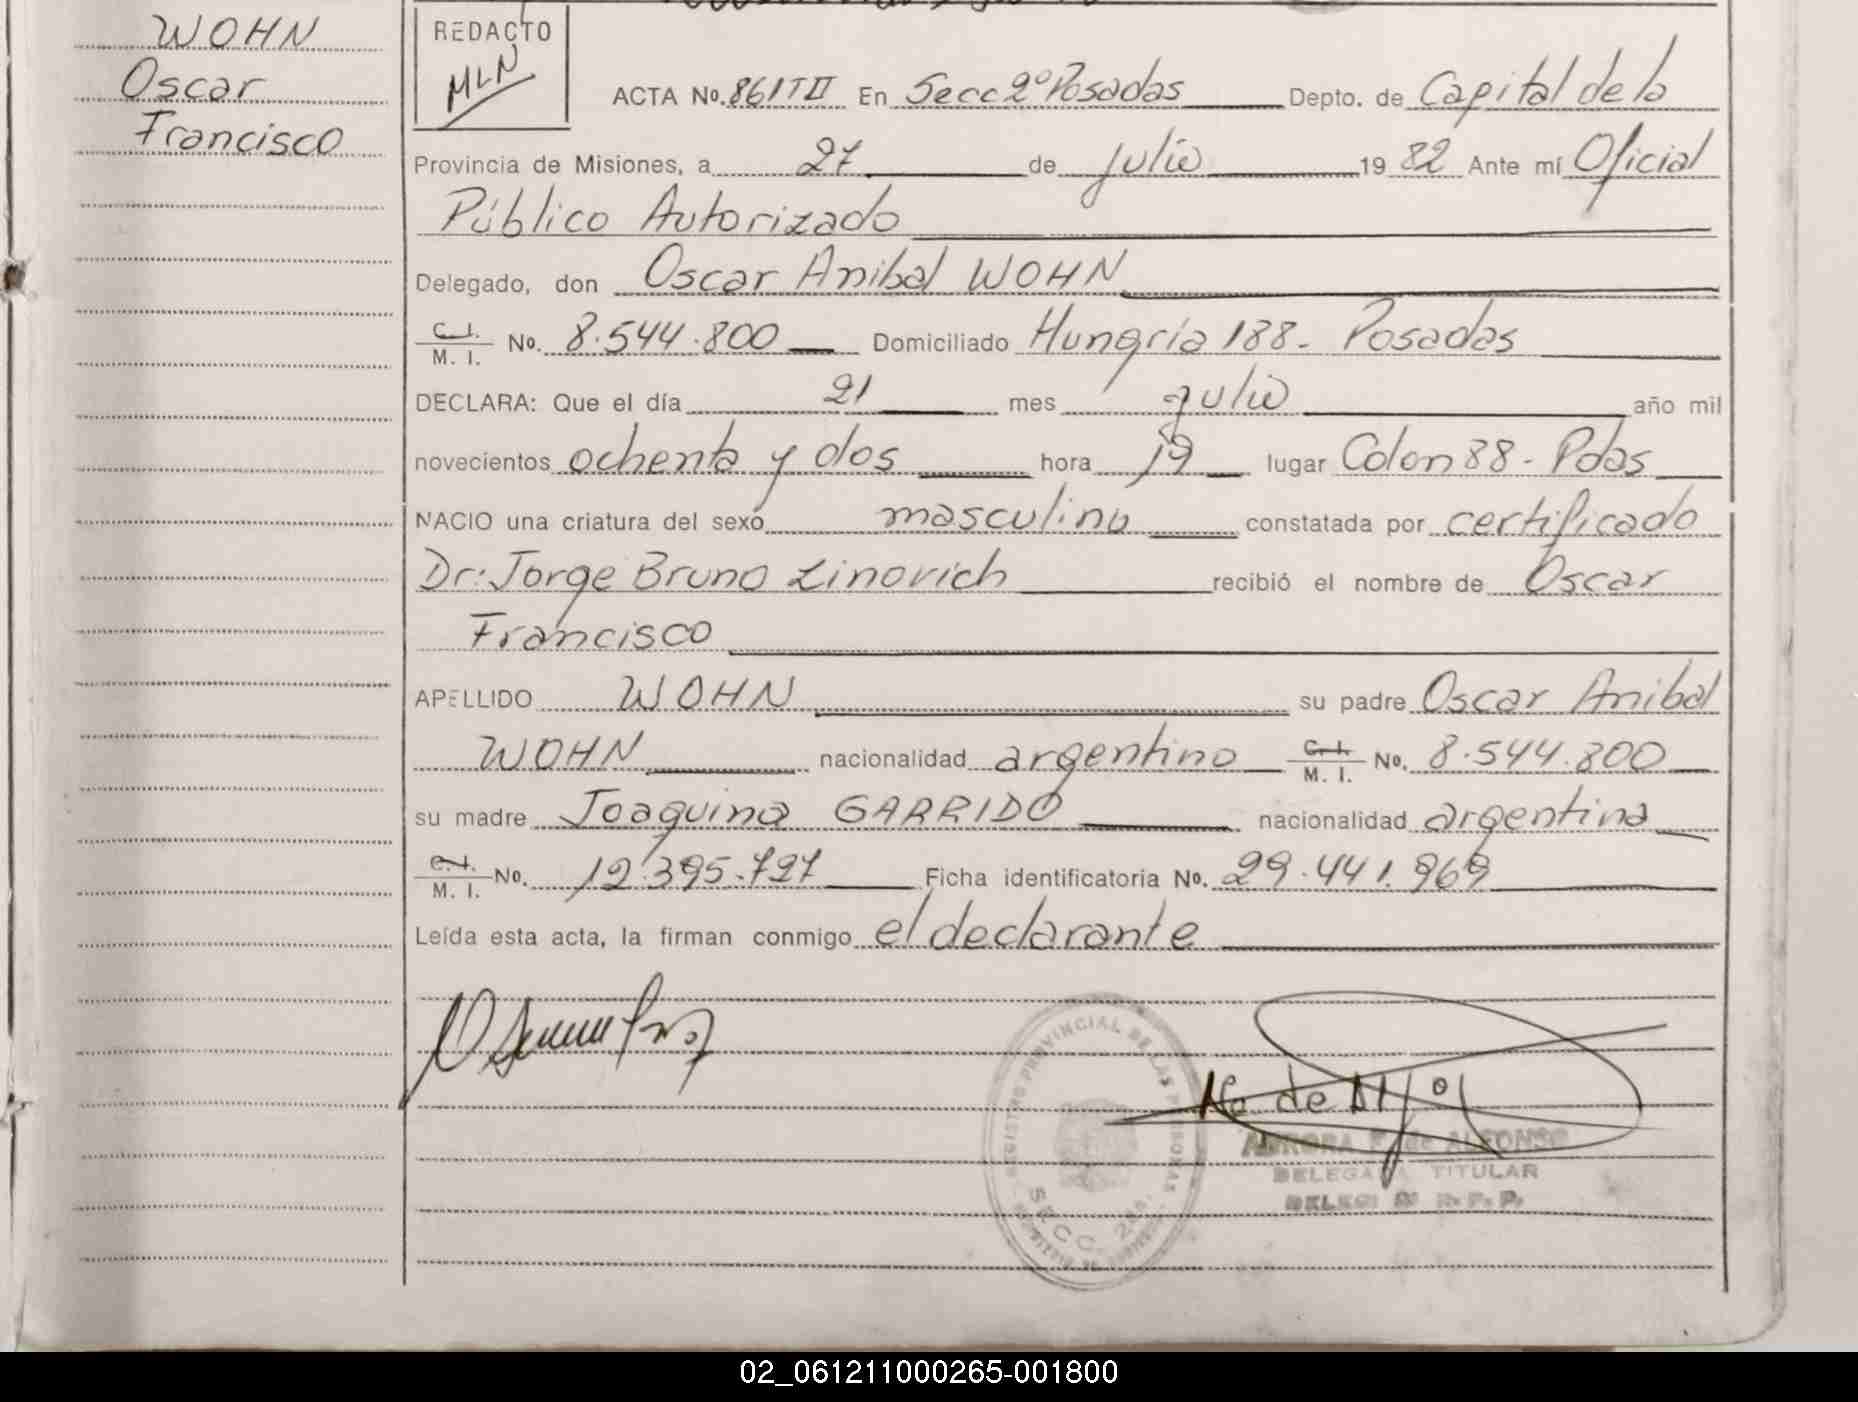 WOHN
Oscar
Francisco
REDACTO
MLN
ACTA No. 861 T II En Secc 2º Posadas Depto. de Capital de la
Provincia de Misiones, a 27 de julio 19 82 Ante mí Oficial
Público Autorizado
Delegado, don Oscar Anibal WOHN
C. I.
M. I. No. 8.544.800 Domiciliado Hungría 188 - Posadas
DECLARA: Que el día 21 mes julio año mil
novecientos ochenta y dos hora 19 lugar Colon 88 - Pdas
NACIO una criatura del sexo masculino constatada por certificado
Dr: Jorge Bruno Linovich recibió el nombre de Oscar
Francisco
APELLIDO WOHN su padre Oscar Anibal
WOHN nacionalidad argentino C. I. M. I. No. 8.544.800
su madre Joaquina GARRIDO nacionalidad argentina
C. I.
M. I. No. 12.395.727 Ficha identificatoria No. 29.441.969
Leída esta acta, la firman conmigo el declarante
REGISTRO PROVINCIAL DE LAS PERSONAS
SECC. 2da.
AURORA F. de ALFONSO
DELEGADA TITULAR
R. P. P.
02_061211000265-001800